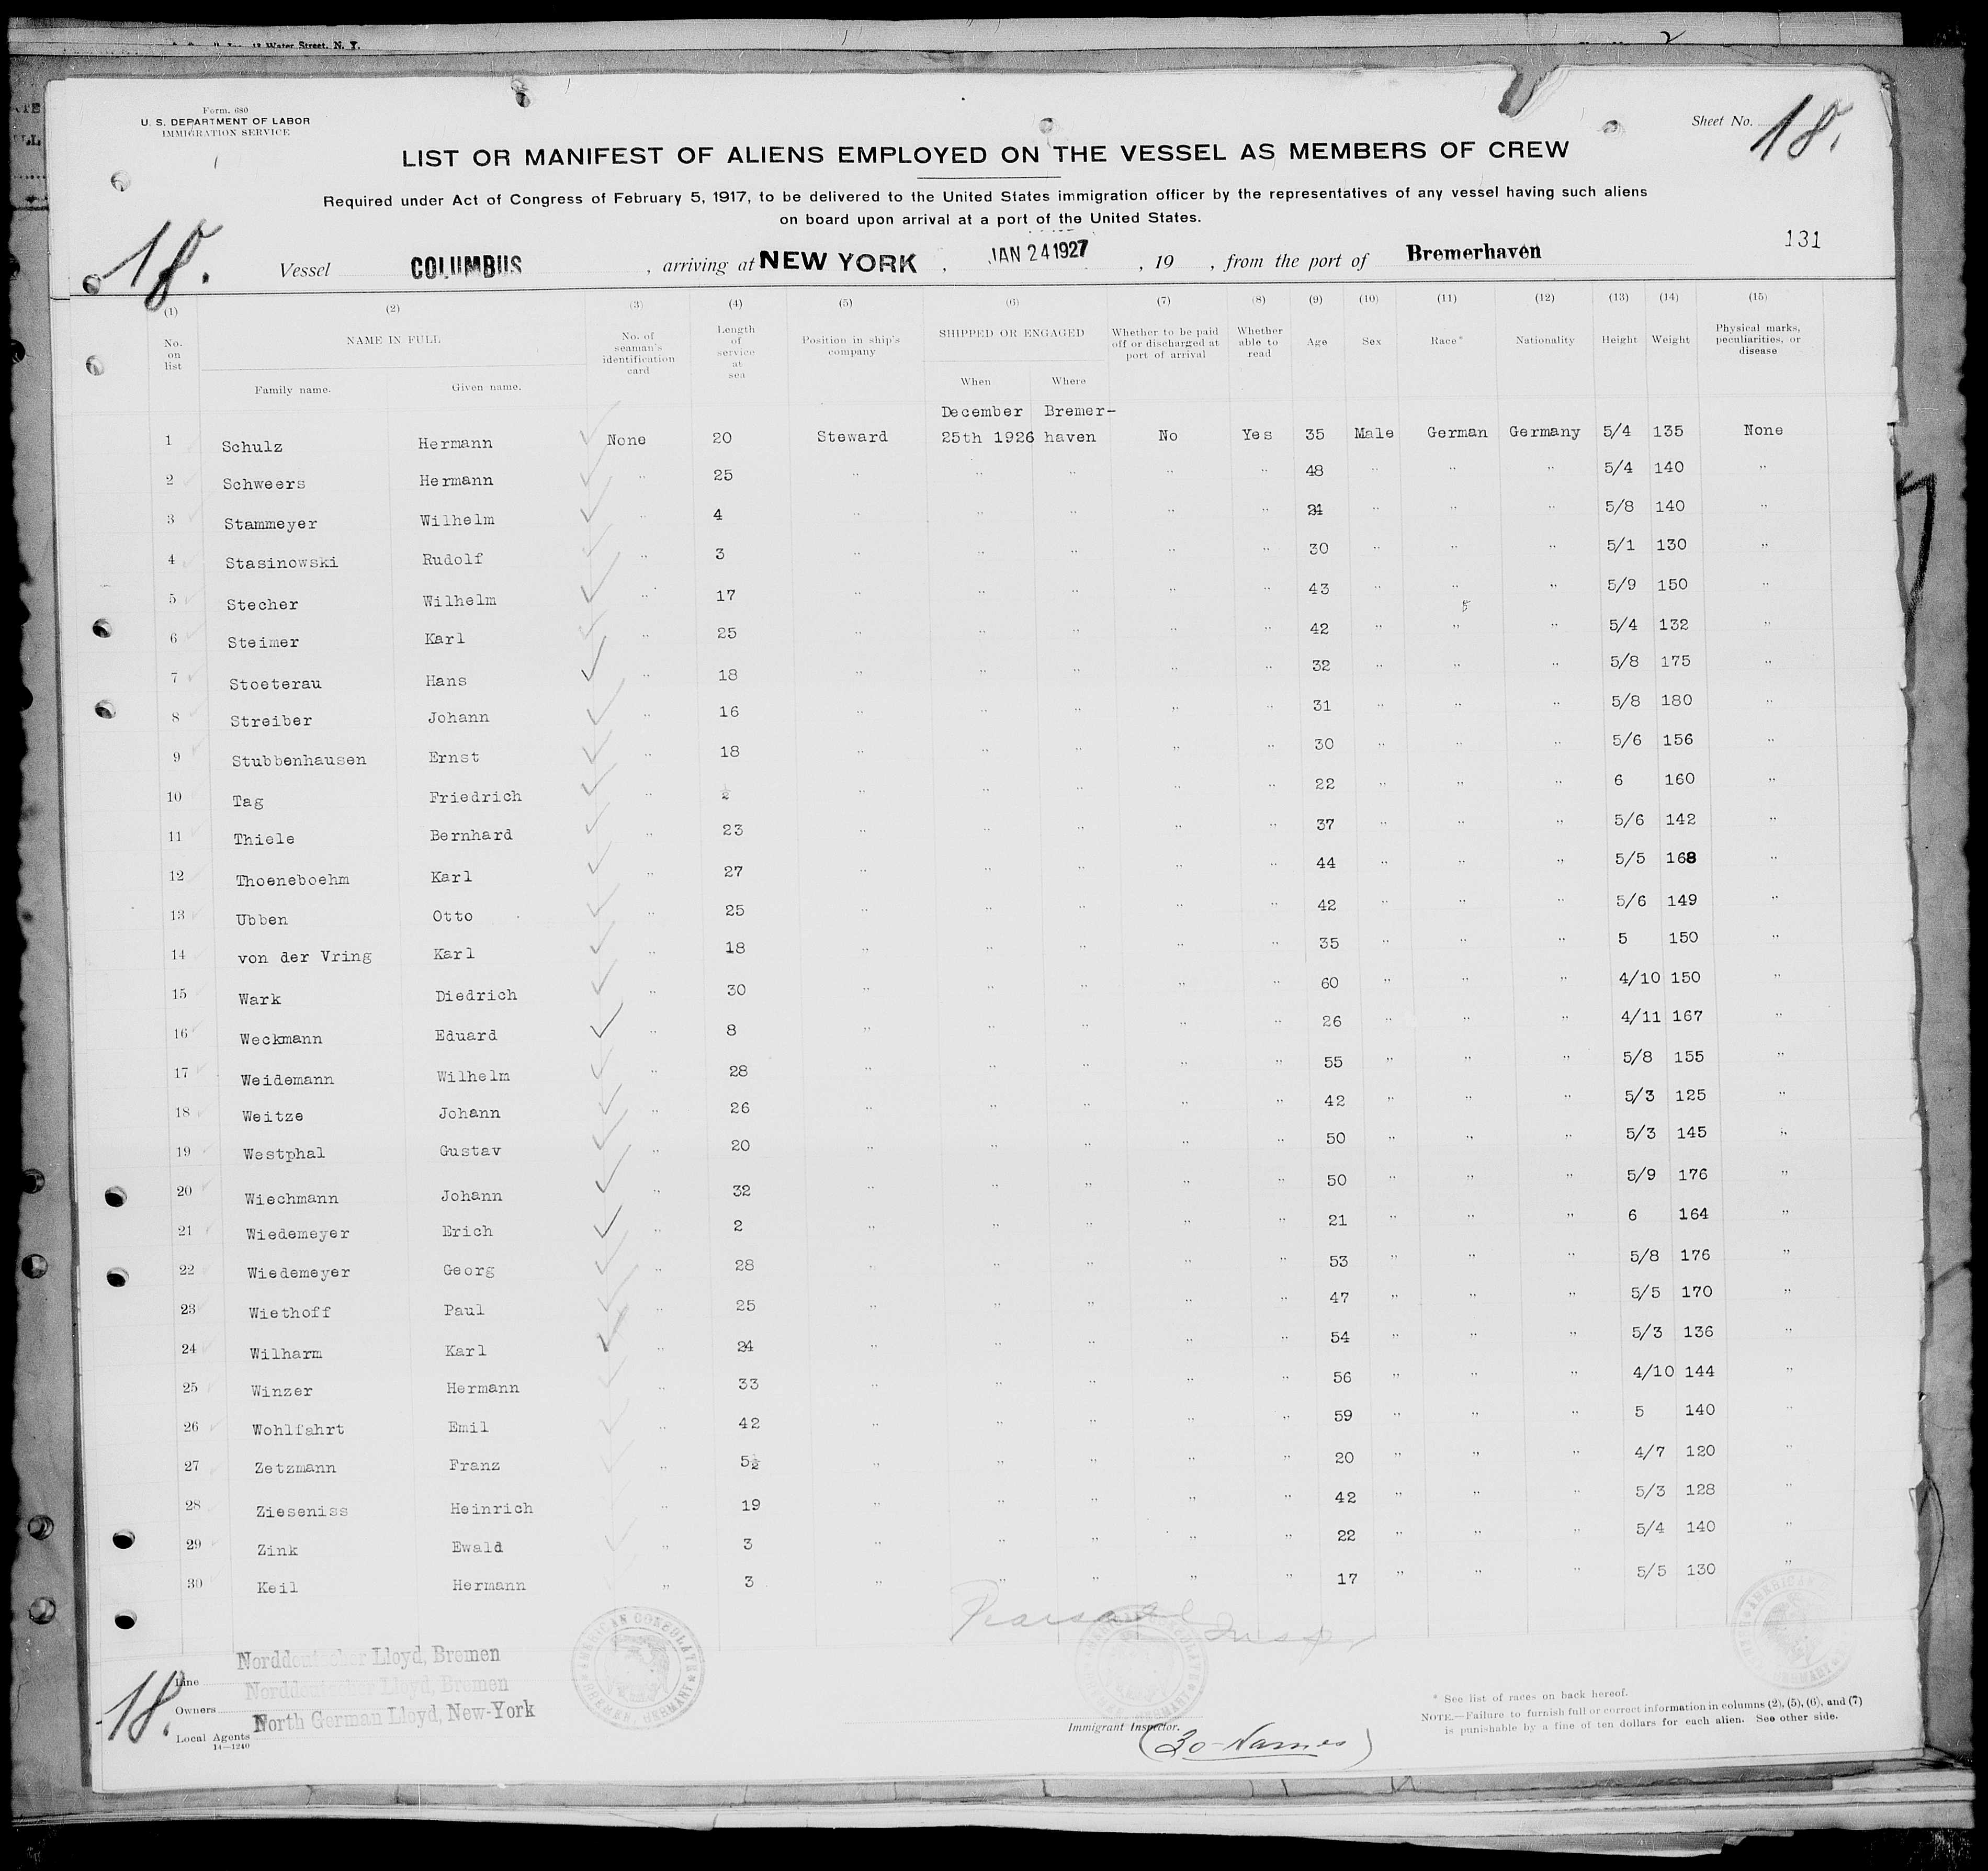 Water Street, N. Y.
2
Form. 680
U. S. DEPARTMENT OF LABOR
IMMIGRATION SERVICE
Sheet No. 18.
LIST OR MANIFEST OF ALIENS EMPLOYED ON THE VESSEL AS MEMBERS OF CREW
Required under Act of Congress of February 5, 1917, to be delivered to the United States immigration officer by the representatives of any vessel having such aliens
on board upon arrival at a port of the United States.
131
18. Vessel COLUMBUS , arriving at NEW YORK , JAN 24 1927 , 19 , from the port of Bremerhaven
(1) (2) (3) (4) (5) (6) (7) (8) (9) (10) (11) (12) (13) (14) (15)
No. on list NAME IN FULL Family name. Given name. No. of seaman's identification card Length of service at sea Position in ship's company SHIPPED OR ENGAGED When Where Whether to be paid off or discharged at port of arrival Whether able to read Age Sex Race* Nationality Height Weight Physical marks, peculiarities, or disease
December Bremer-
1 Schulz Hermann None 20 Steward 25th 1926 haven No Yes 35 Male German Germany 5/4 135 None
2 Schweers Hermann " 25 " " " " " 48 " " " 5/4 140 "
3 Stammeyer Wilhelm " 4 " " " " " " " " 5/8 140 "
4 Stasinowski Rudolf " 3 " " " " " 30 " " " 5/1 130 "
5 Stecher Wilhelm " 17 " " " " " 43 " " " 5/9 150 "
6 Steimer Karl " 25 " " " " " 42 " " " 5/4 132 "
7 Stoeterau Hans " 18 " " " " " 32 " " " 5/8 175 "
8 Streiber Johann " 16 " " " " " 31 " " " 5/8 180 "
9 Stubbenhausen Ernst " 18 " " " " " 30 " " " 5/6 156 "
10 Tag Friedrich " ½ " " " " " 22 " " " 6 160 "
11 Thiele Bernhard " 23 " " " " " 37 " " " 5/6 142 "
12 Thoeneboehm Karl " 27 " " " " " 44 " " " 5/5 168 "
13 Ubben Otto " 25 " " " " " 42 " " " 5/6 149 "
14 von der Vring Karl " 18 " " " " " 35 " " " 5 150 "
15 Wark Diedrich " 30 " " " " " 60 " " " 4/10 150 "
16 Weckmann Eduard " 8 " " " " " 26 " " " 4/11 167 "
17 Weidemann Wilhelm " 28 " " " " " 55 " " " 5/8 155 "
18 Weitze Johann " 26 " " " " " 42 " " " 5/3 125 "
19 Westphal Gustav " 20 " " " " " 50 " " " 5/3 145 "
20 Wiechmann Johann " 32 " " " " " 50 " " " 5/9 176 "
21 Wiedemeyer Erich " 2 " " " " " 21 " " " 6 164 "
22 Wiedemeyer Georg " 28 " " " " " 53 " " " 5/8 176 "
23 Wiethoff Paul " 25 " " " " " 47 " " " 5/5 170 "
24 Wilharm Karl " 24 " " " " " 54 " " " 5/3 136 "
25 Winzer Hermann " 33 " " " " " 56 " " " 4/10 144 "
26 Wohlfahrt Emil " 42 " " " " " 59 " " " 5 140 "
27 Zetzmann Franz " 5½ " " " " " 20 " " " 4/7 120 "
28 Zieseniss Heinrich " 19 " " " " " 42 " " " 5/3 128 "
29 Zink Ewald " 3 " " " " " 22 " " " 5/4 140 "
30 Keil Hermann " 3 " " " " " 17 " " " 5/5 130 "
AMERICAN CONSULATE BREMEN, GERMANY
18.
Line Norddeutscher Lloyd, Bremen
Owners Norddeutscher Lloyd, Bremen
Local Agents North German Lloyd, New-York
14—1240
Immigrant Inspector.
(30-Names)
* See list of races on back hereof.
NOTE.—Failure to furnish full or correct information in columns (2), (5), (6), and (7)
is punishable by a fine of ten dollars for each alien. See other side.